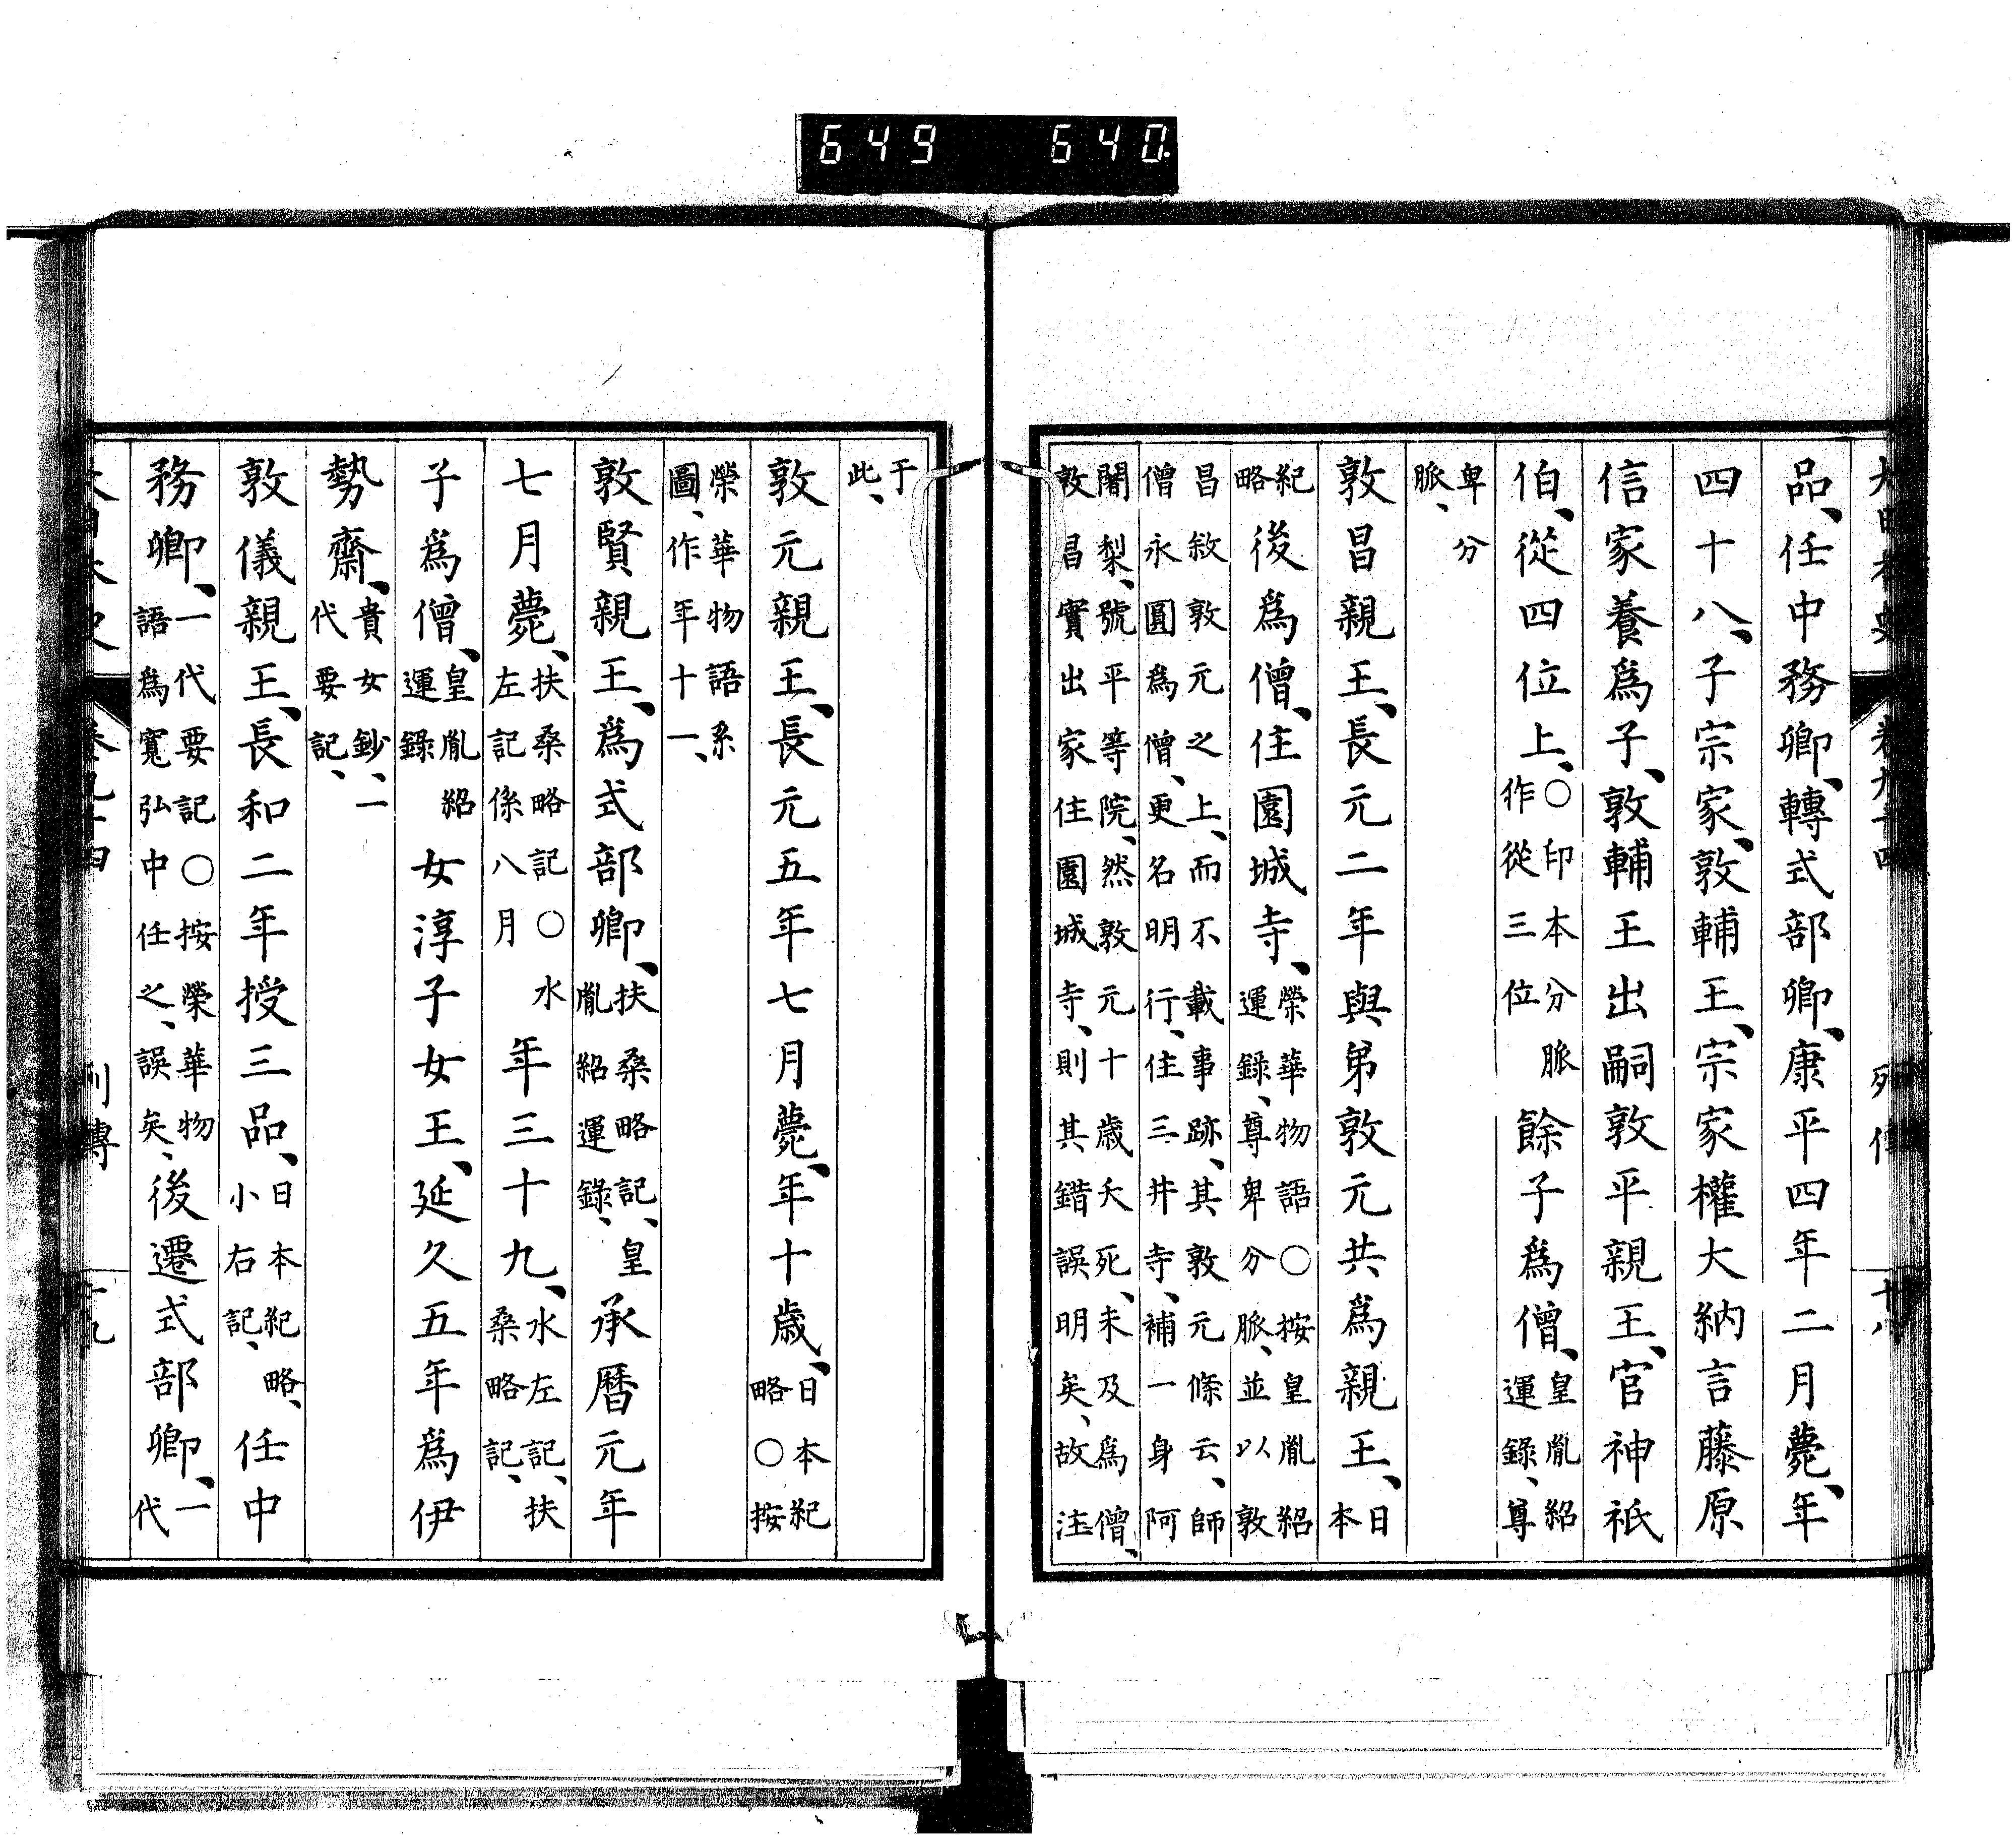 649 640
品、任中務卿、轉式部卿、康平四年二月薨、年
四十八、子宗家、敦輔王、宗家權大納言藤原
信家養爲子、敦輔王出嗣敦平親王、官神祇
伯、從四位上、○印本分脈作從三位 餘子爲僧、皇胤紹運錄、尊
卑分脈、
敦昌親王、長元二年與弟敦元共爲親王、日本
紀略 後爲僧、住園城寺、榮華物語○按皇胤紹運錄、尊卑分脈、並以敦
昌敘敦元之上、而不載事跡、其敦元條云、師僧永圓爲僧、更名明行、住三井寺、補一身阿
闍梨、號平等院、然敦元十歲夭死、未及爲僧、敦昌實出家住園城寺、則其錯誤明矣、故注
于此、
敦元親王、長元五年七月薨、年十歲、日本紀略○按
榮華物語系圖、作年十一、
敦賢親王、爲式部卿、扶桑略記、皇胤紹運錄、 承曆元年
七月薨、扶桑略記○水左記係八月 年三十九、水左記、扶桑略記、
子爲僧、皇胤紹運錄 女淳子女王、延久五年爲伊
勢齋、貴女鈔、一代要記、
敦儀親王、長和二年授三品、日本紀略、小右記、 任中
務卿、一代要記○按榮華物語爲寬弘中任之、誤矣、 後遷式部卿、一代